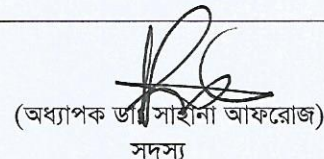 (অধ্যাপক ডাঃ সাহানা আফরোজ)
সদস্য